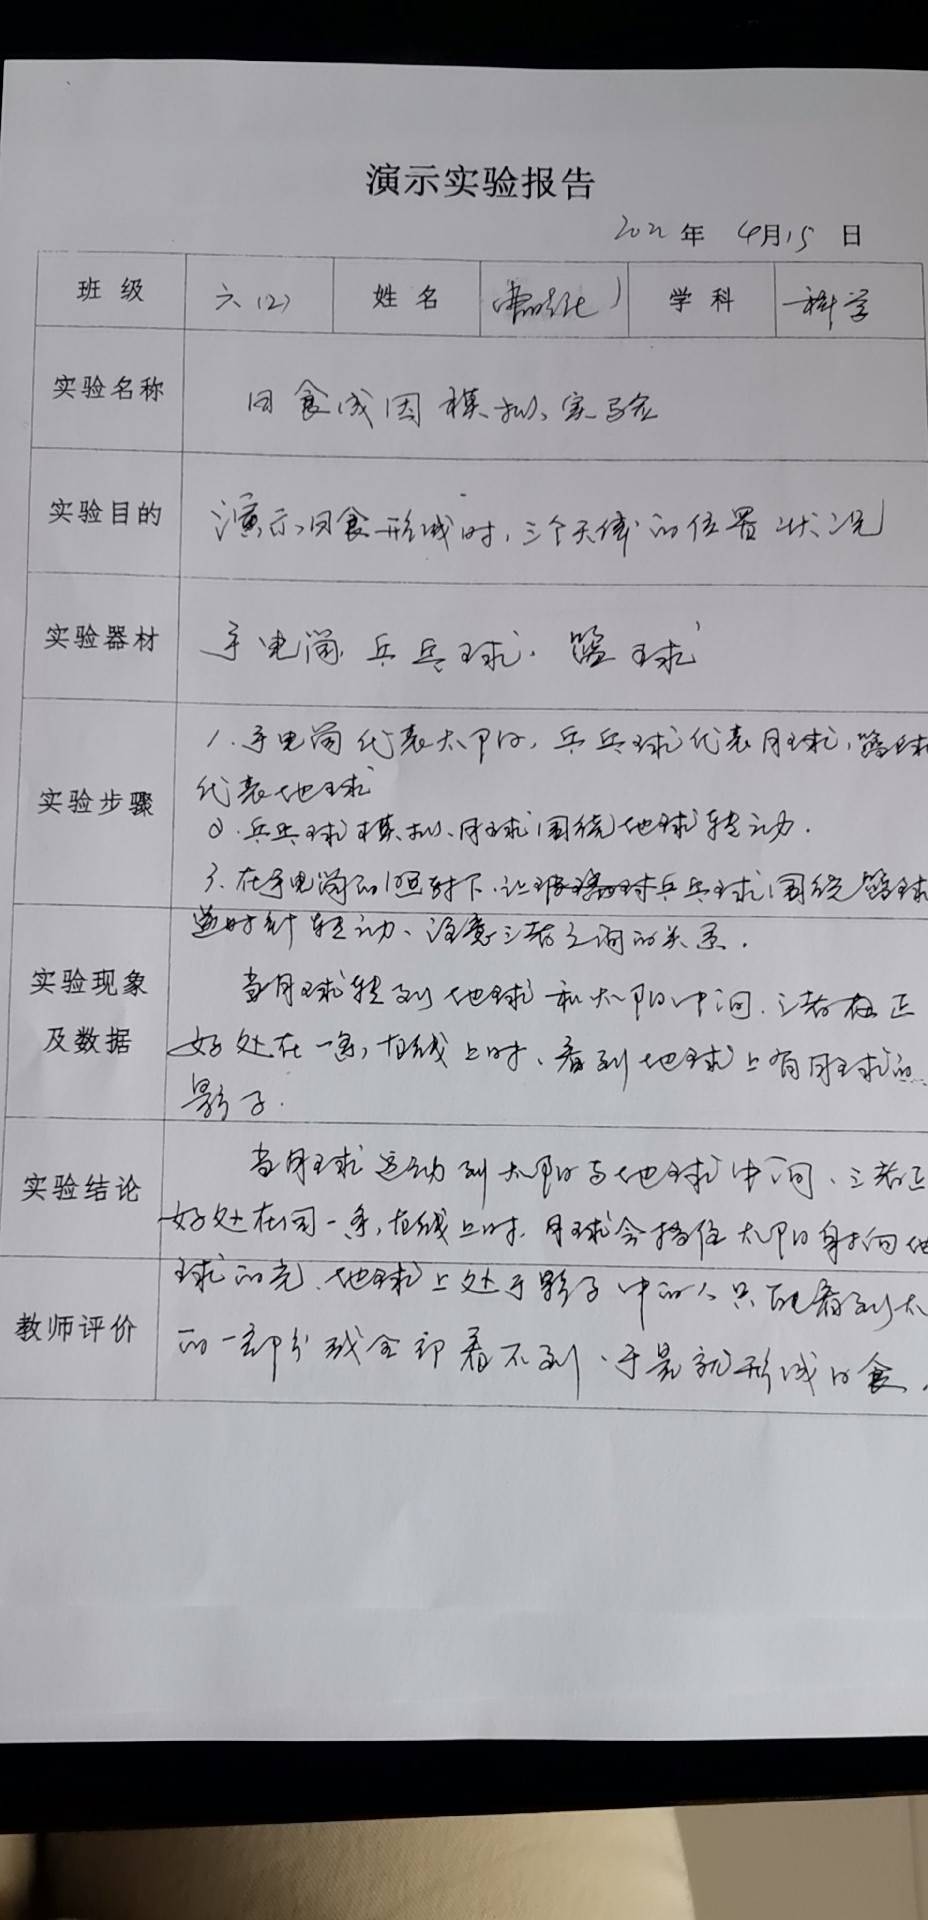 演示实验报告
2022年 4月15日
班级 六(2) 姓名 学科 科学
实验名称 日食成因模拟实验
实验目的 演示日食形成时,三个天体的位置状况
实验器材 手电筒、乒乓球、篮球
1.手电筒代表太阳,乒乓球代表月球,篮球
实验步骤 代表地球
2.乒乓球模拟月球围绕地球转动.
3.在手电筒的照射下,让乒乓球围绕篮球
逆时针转动、注意三者之间的关系.
实验现象 当月球转到地球和太阳中间.三者在正
及数据 好处在一条直线上时、看到地球上有月球的
影子.
实验结论 当月球运动到太阳与地球中间、三者正
好处在同一条直线上时.月球会挡住太阳身射向地
球的光、地球上处于影子中的人只能看到太
教师评价 的一部分或全部看不到.于是就形成日食.